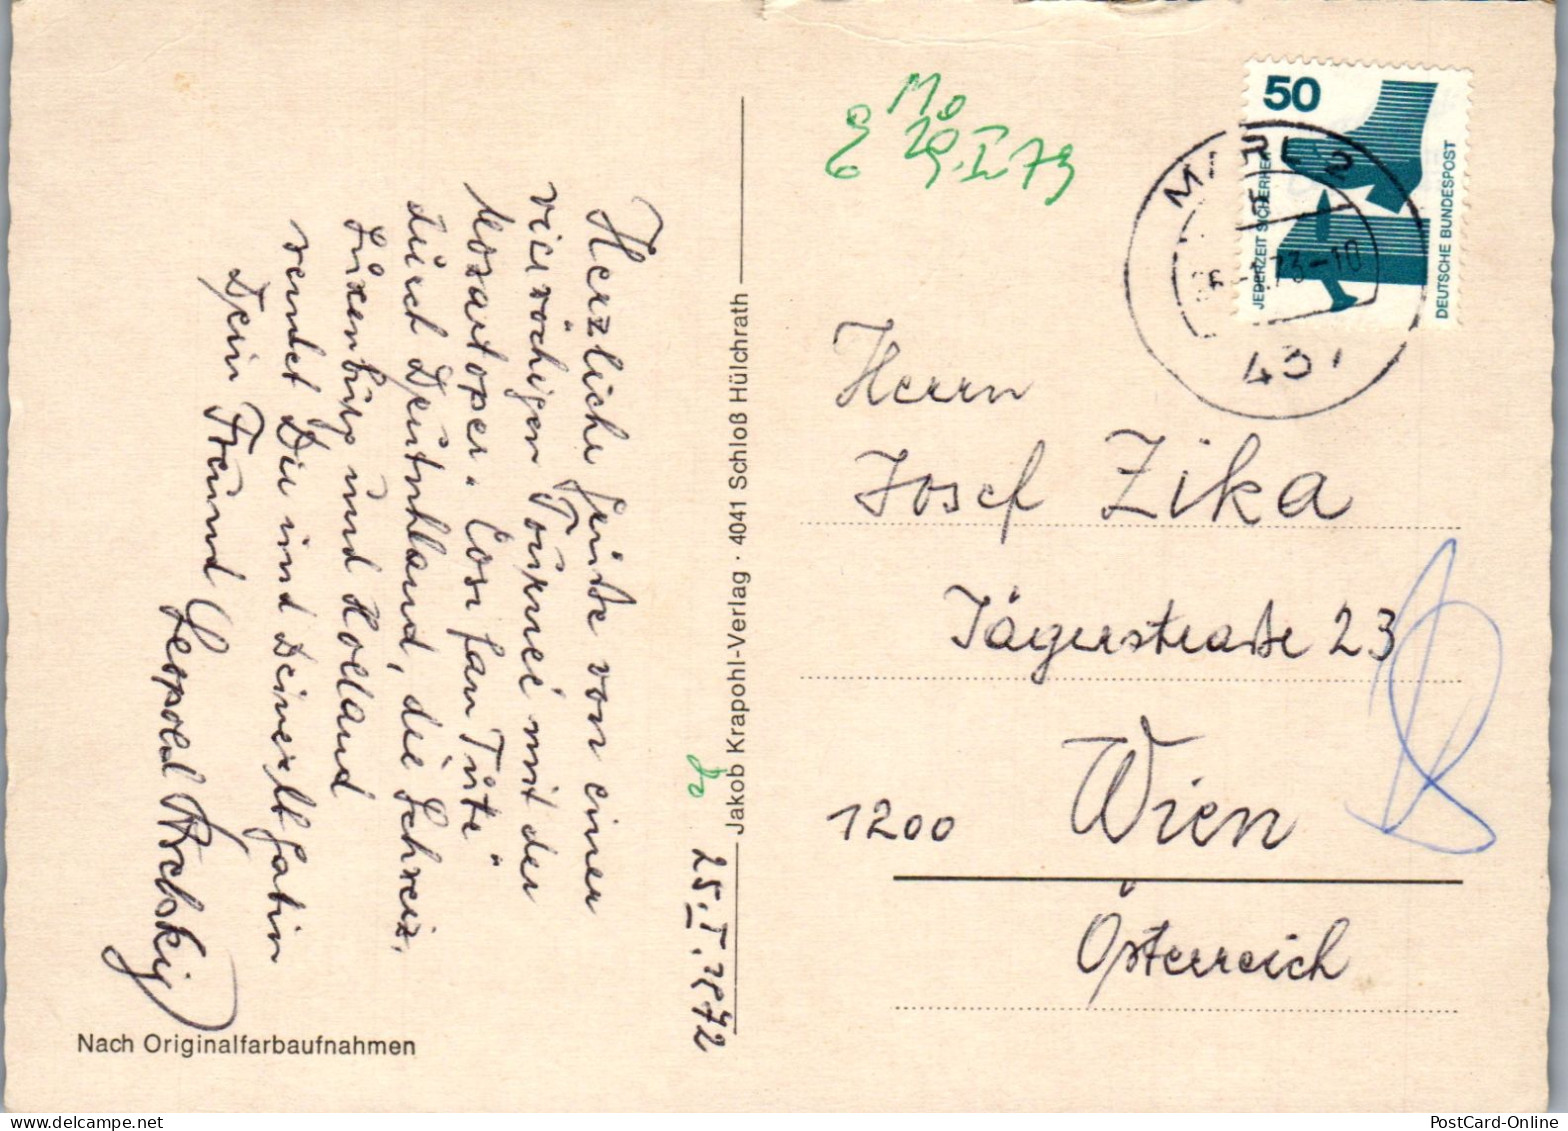 Herzliche Grüße von einer
vierwöchigen Tournee mit der
Mozartoper "Cosi fan Tute"
durch Deutschland, die Schweiz,
Luxenburg und Holland
sendet Dir und Deiner lb Gatin
Dein Freund
Leopold
25.I.1972
Nach Originalfarbaufnahmen
Jakob Krapohl-Verlag · 4041 Schloß Hülchrath
Mo
29.I.73
50
JEDERZEIT SICHERHEIT
DEUTSCHE BUNDESPOST
MARL 2
73-10
437
Herrn
Josef Zika
Jägerstraße 23
1200 Wien
Österreich
PostCard-Online